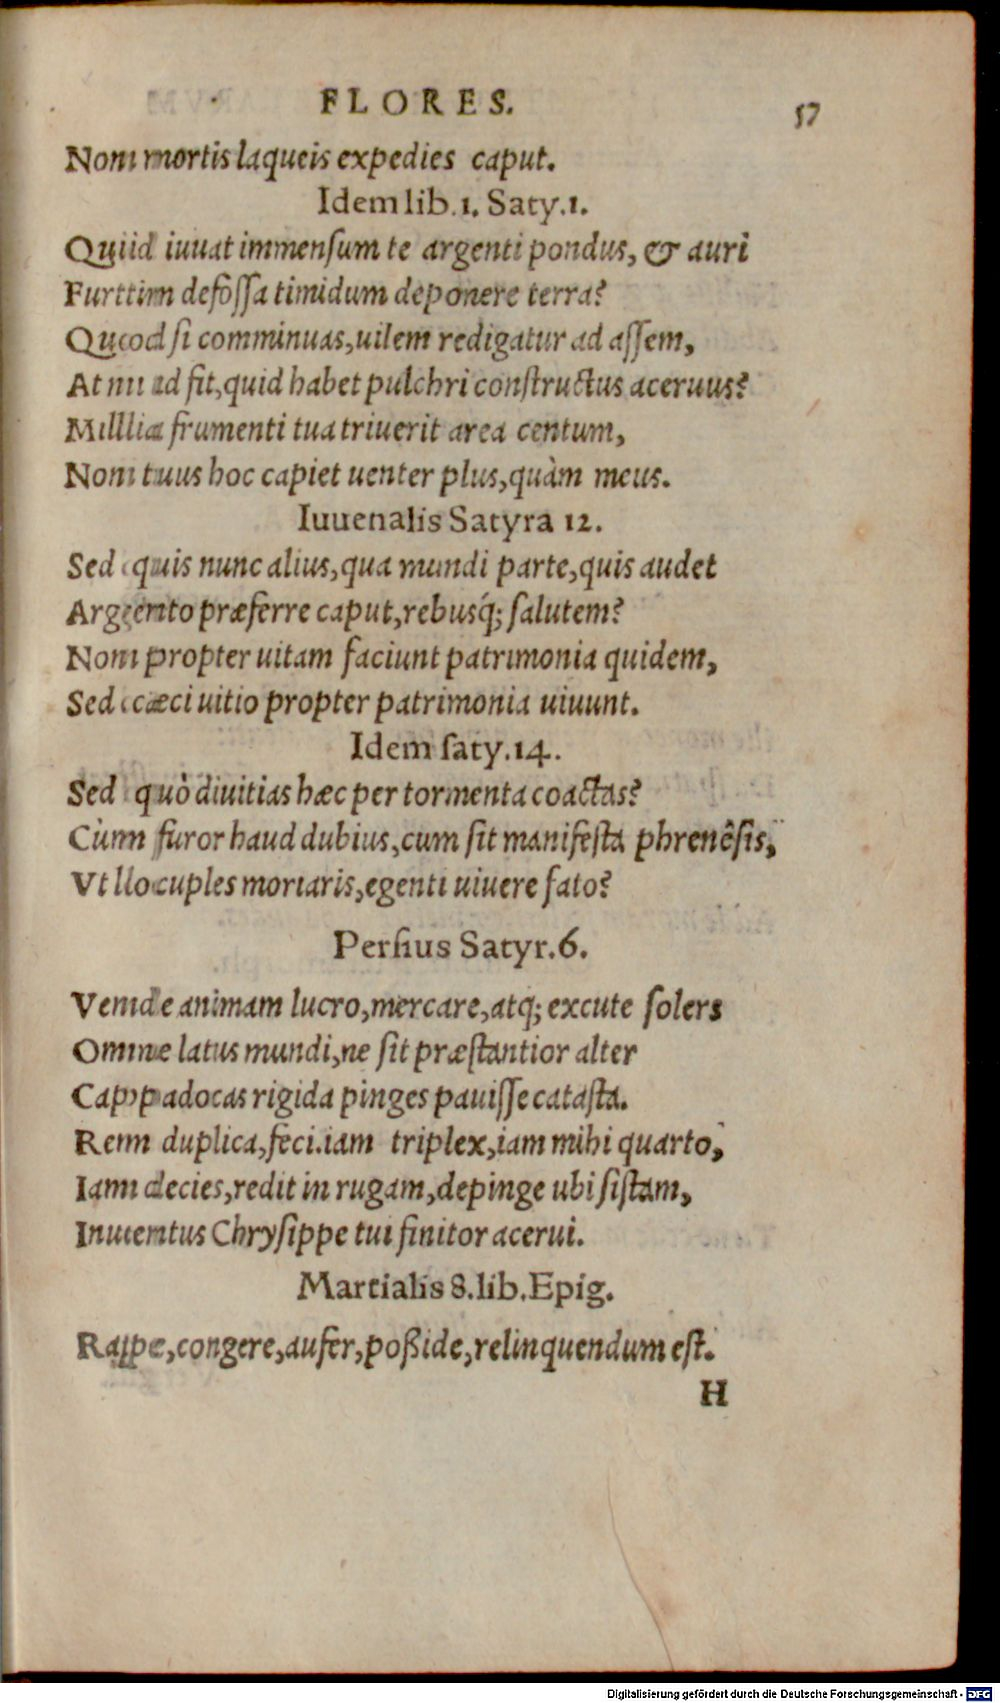 FLORES. 57
Non mortis laqueis expedies caput.
Idem lib.1. Saty.1.
Quid iuuat immensum te argenti pondus, & auri
Furtim defossa timidum deponere terra?
Quod si comminuas,uilem redigatur ad assem,
At ni id fit,quid habet pulchri constructus aceruus?
Millia frumenti tua triuerit area centum,
Non tuus hoc capiet uenter plus,quàm meus.
Iuuenalis Satyra 12.
Sed quis nunc alius,qua mundi parte,quis audet
Argento præferre caput,rebusq́; salutem?
Non propter uitam faciunt patrimonia quidem,
Sed cæci uitio propter patrimonia uiuunt.
Idem saty.14.
Sed quò diuitias hæc per tormenta coactas?
Cùm furor haud dubius,cum sit manifesta phrenêsis,
Vt locuples moriaris,egenti uiuere fato?
Persius Satyr.6.
Vende animam lucro,mercare,atq; excute solers
Omne latus mundi,ne sit præstantior alter
Cappadocas rigida pinges pauisse catasta.
Rem duplica,feci.iam triplex,iam mihi quarto,
Iam decies,redit in rugam,depinge ubi sistam,
Inuentus Chrysippe tui finitor acerui.
Martialis 8.lib.Epig.
Rape,congere,aufer,poßide,relinquendum est.
H
Digitalisierung gefördert durch die Deutsche Forschungsgemeinschaft - DFG